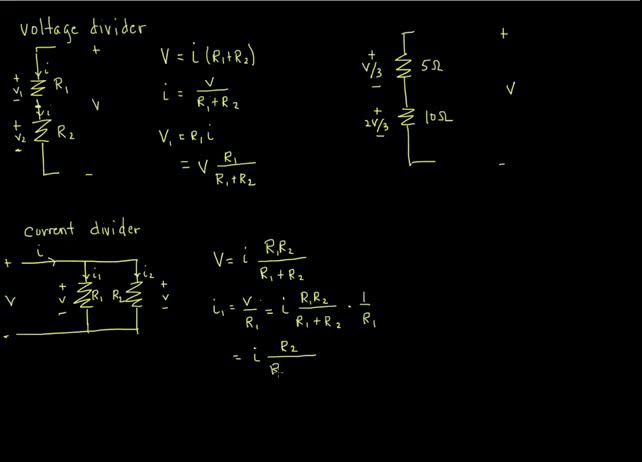 voltage divider
+
i
+
V₁
−
R₁
V
i
+
V₂
−
R₂
−
V = i (R₁+R₂)
i = V / (R₁+R₂)
V₁ = R₁ i
= V R₁ / (R₁+R₂)
+
+
V/3
−
5Ω
V
+
2V/3
−
10Ω
−
current divider
i
+
i₁
i₂
+
V
−
R₁
R₂
+
V
−
V
−
V = i R₁R₂ / (R₁+R₂)
i₁ = V/R₁ = i R₁R₂ / (R₁+R₂) · 1/R₁
= i R₂ / R